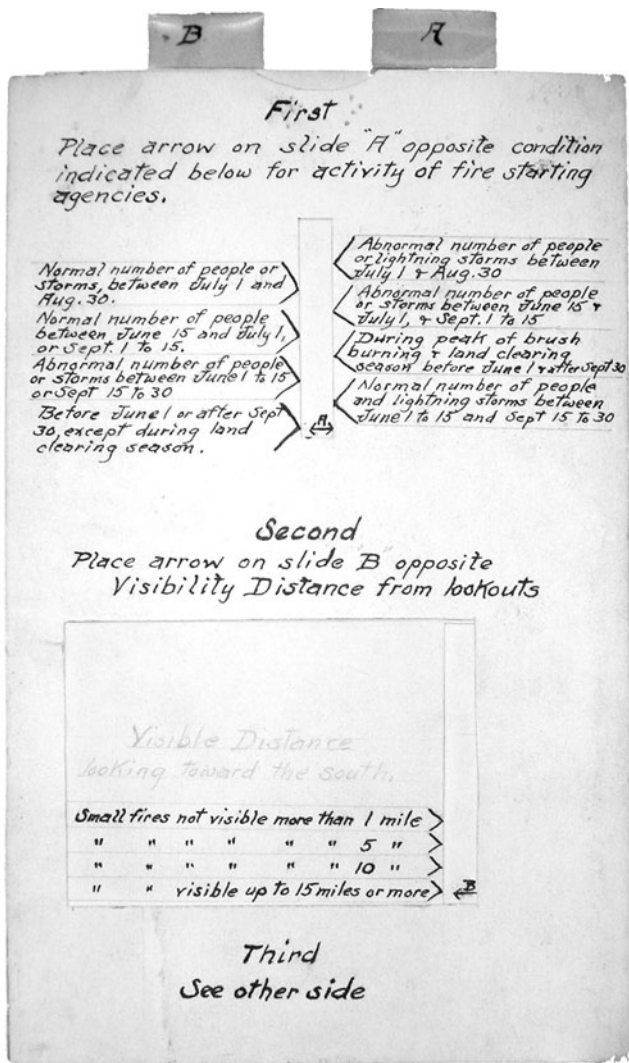 B
A
First
Place arrow on slide "A" opposite condition
indicated below for activity of fire starting
agencies.
Normal number of people or
storms, between July 1 and
Aug. 30.
Normal number of people
between June 15 and July 1,
or Sept. 1 to 15.
Abnormal number of people
or storms between June 1 to 15
or Sept 15 to 30
Before June 1 or after Sept
30, except during land
clearing season.
Abnormal number of people
or lightning storms between
July 1 & Aug. 30
Abnormal number of people
or storms between June 15 &
July 1, & Sept. 1 to 15
During peak of brush
burning & land clearing
season before June 1 & after Sept 30
Normal number of people
and lightning storms between
June 1 to 15 and Sept 15 to 30
A
Second
Place arrow on slide "B" opposite
Visibility Distance from lookouts
Visible Distance
looking toward the south.
Small fires not visible more than 1 mile
" " " " " " 5 "
" " " " " " 10 "
" " visible up to 15 miles or more
B
Third
See other side